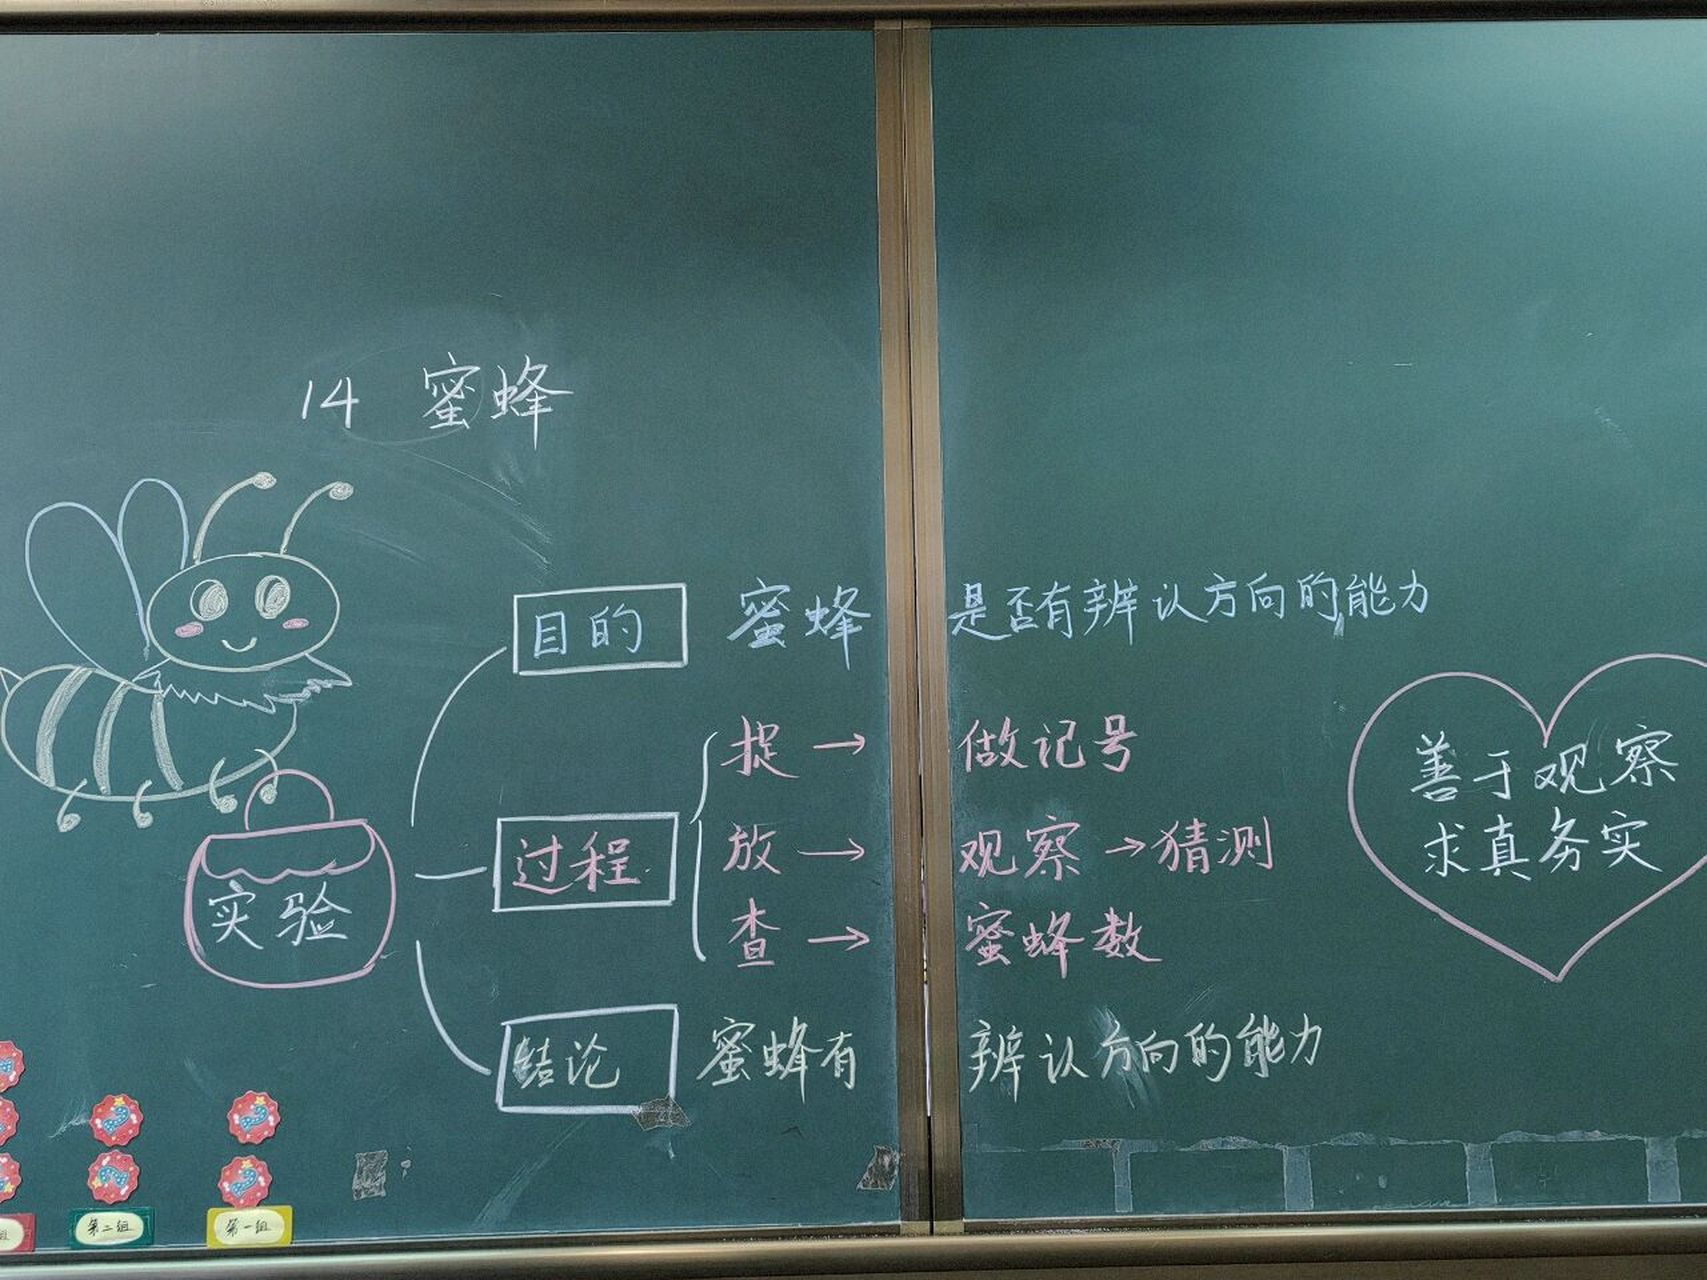 14 蜜蜂
目的 蜜蜂是否有辨认方向的能力
捉 → 做记号
善于观察
求真务实
过程 放 → 观察 → 猜测
实验
查 → 蜜蜂数
结论 蜜蜂有辨认方向的能力
组
第二组
第一组